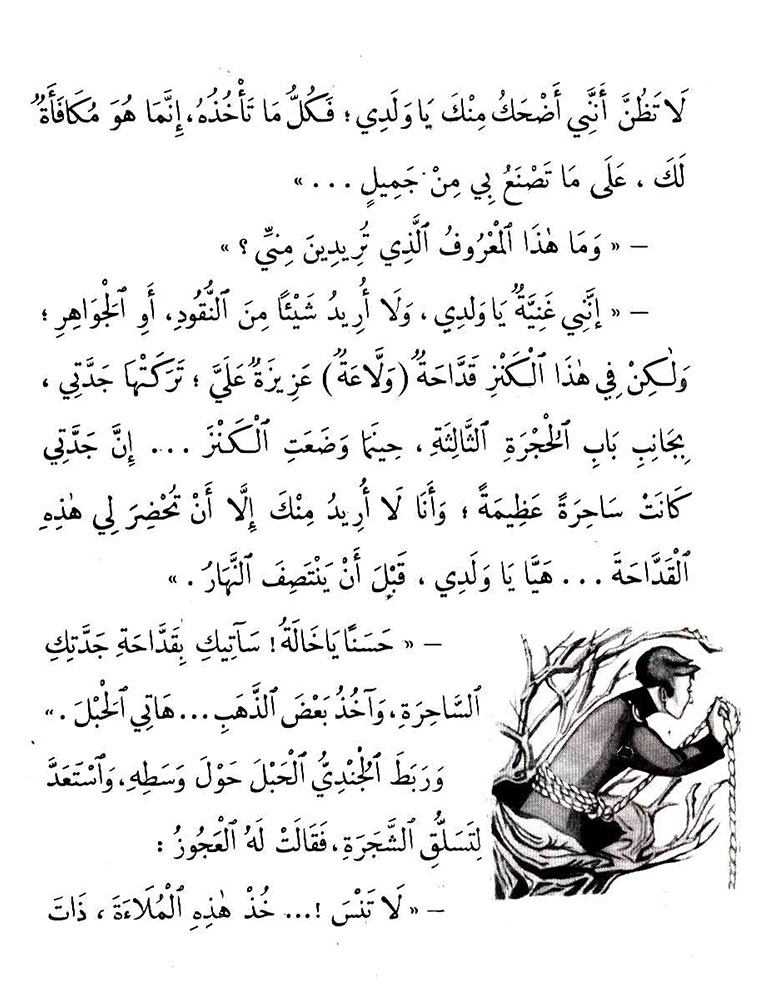 لَا تَظُنَّ أَنَّنِي أَضْحَكُ مِنْكَ يَا وَلَدِي ؛ فَكُلُّ مَا تَأْخُذُهُ، إِنَّمَا هُوَ مُكَافَأَةٌ
لَكَ ، عَلَى مَا تَصْنَعُ بِي مِنْ جَمِيلٍ ... »
– « وَمَا هٰذَا ٱلْمَعْرُوفُ ٱلَّذِي تُرِيدِينَ مِنِّي ؟ »
– « إِنَّنِي غَنِيَّةٌ يَا وَلَدِي ، وَلَا أُرِيدُ شَيْئًا مِنَ ٱلنُّقُودِ، أَوِ ٱلْجَوَاهِرِ ؛
وَلٰكِنْ فِي هٰذَا ٱلْكَنْزِ قَدَّاحَةٌ (وَلَّاعَةٌ) عَزِيزَةٌ عَلَيَّ ؛ تَرَكَتْهَا جَدَّتِي ،
بِجَانِبِ بَابِ ٱلْحُجْرَةِ ٱلثَّالِثَةِ ، حِينَمَا وَضَعَتِ ٱلْكَنْزَ ... إِنَّ جَدَّتِي
كَانَتْ سَاحِرَةً عَظِيمَةً ؛ وَأَنَا لَا أُرِيدُ مِنْكَ إِلَّا أَنْ تُحْضِرَ لِي هٰذِهِ
ٱلْقَدَّاحَةَ ... هَيَّا يَا وَلَدِي ، قَبْلَ أَنْ يَنْتَصِفَ ٱلنَّهَارُ . »
– « حَسَنًا يَا خَالَةُ! سَآتِيكِ بِقَدَّاحَةِ جَدَّتِكِ
ٱلسَّاحِرَةِ، وَآخُذُ بَعْضَ ٱلذَّهَبِ... هَاتِي ٱلْحَبْلَ . »
وَرَبَطَ ٱلْجُنْدِيُّ ٱلْحَبْلَ حَوْلَ وَسَطِهِ، وَٱسْتَعَدَّ
لِتَسَلُّقِ ٱلشَّجَرَةِ ، فَقَالَتْ لَهُ ٱلْعَجُوزُ :
– « لَا تَنْسَ !... خُذْ هٰذِهِ ٱلْمُلَاءَةَ ، ذَاتَ